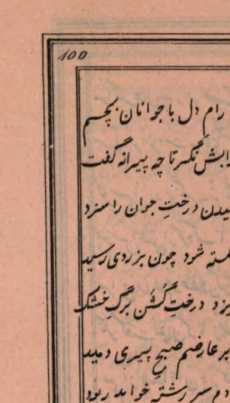 100
رام دل با جوانان بچسم
جوابش نگر تا چه پیرانه گفت
درخت جوان را سزد
شکسته شود چون بزردی رسید
درخت گشن برگ خشک
بر عارضم صبح پیری دمید
دم سر رشته خواهد ربود